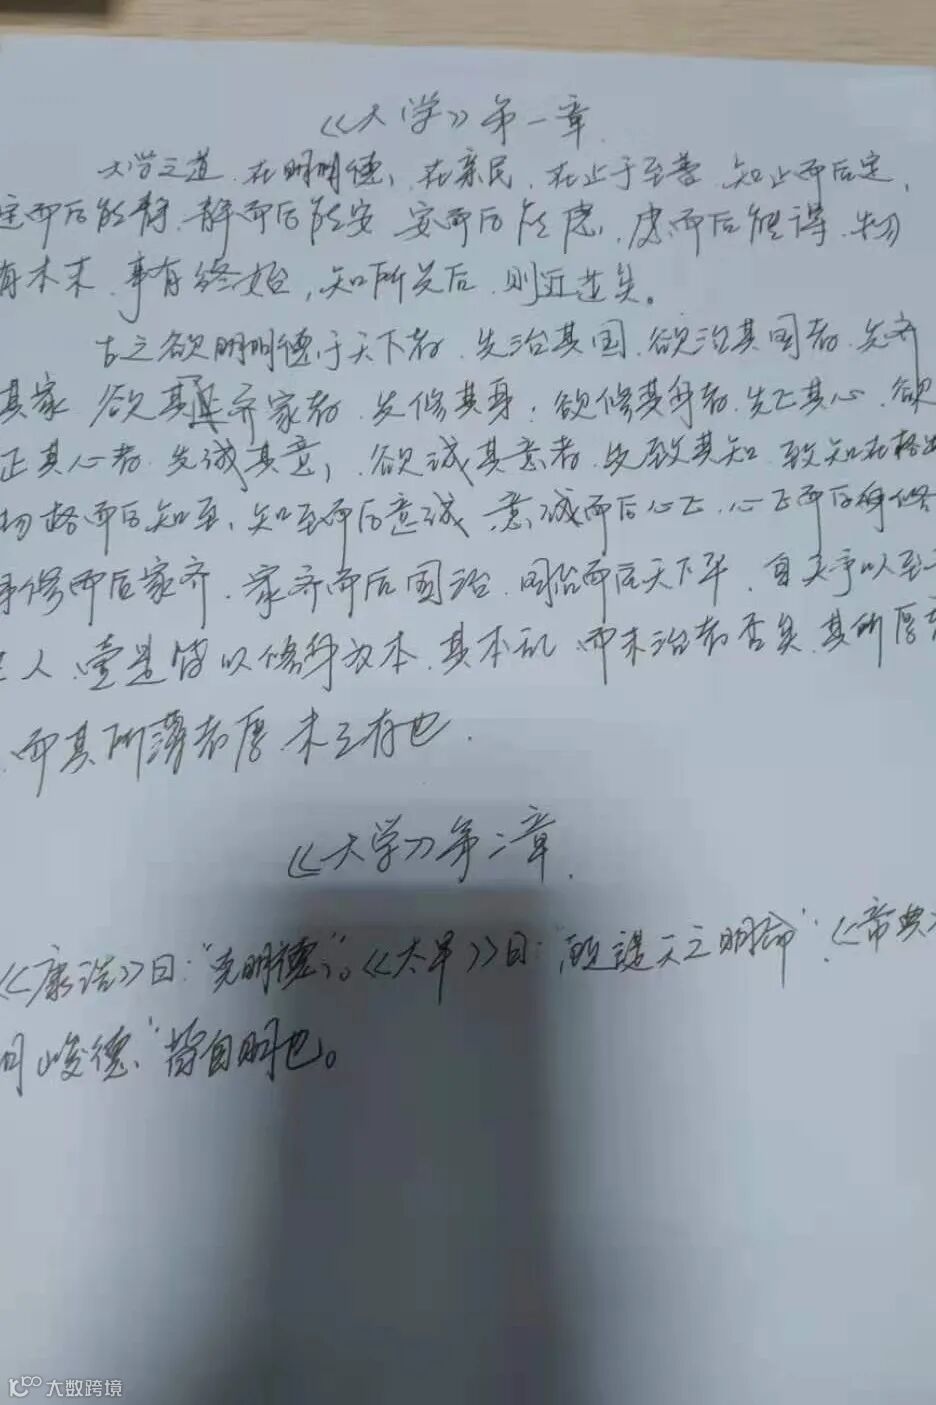 《大学》第一章
大学之道、在明明德、在亲民、在止于至善、知止而后定，
定而后能静、静而后能安 安而后能虑，虑而后能得、物
有本末、事有终始，知所先后、则近道矣。
古之欲明明德于天下者、先治其国、欲治其国者、先齐
其家 欲其齐家者、先修其身，欲修其身者、先正其心、欲
正其心者、先诚其意，欲诚其意者、先致其知、致知在格物
物格而后知至、知至而后意诚 意诚而后心正、心正而后身修
身修而后家齐、家齐而后国治、国治而后天下平、自天子以至于
人、壹是皆以修身为本、其本乱 而末治者否矣、其所厚者
、而其所薄者厚、未之有也、
《大学》第二章
《康诰》曰：“克明德”。《太甲》曰：“顾諟天之明命”，《帝典》
明峻德、”皆自明也。
大数跨境